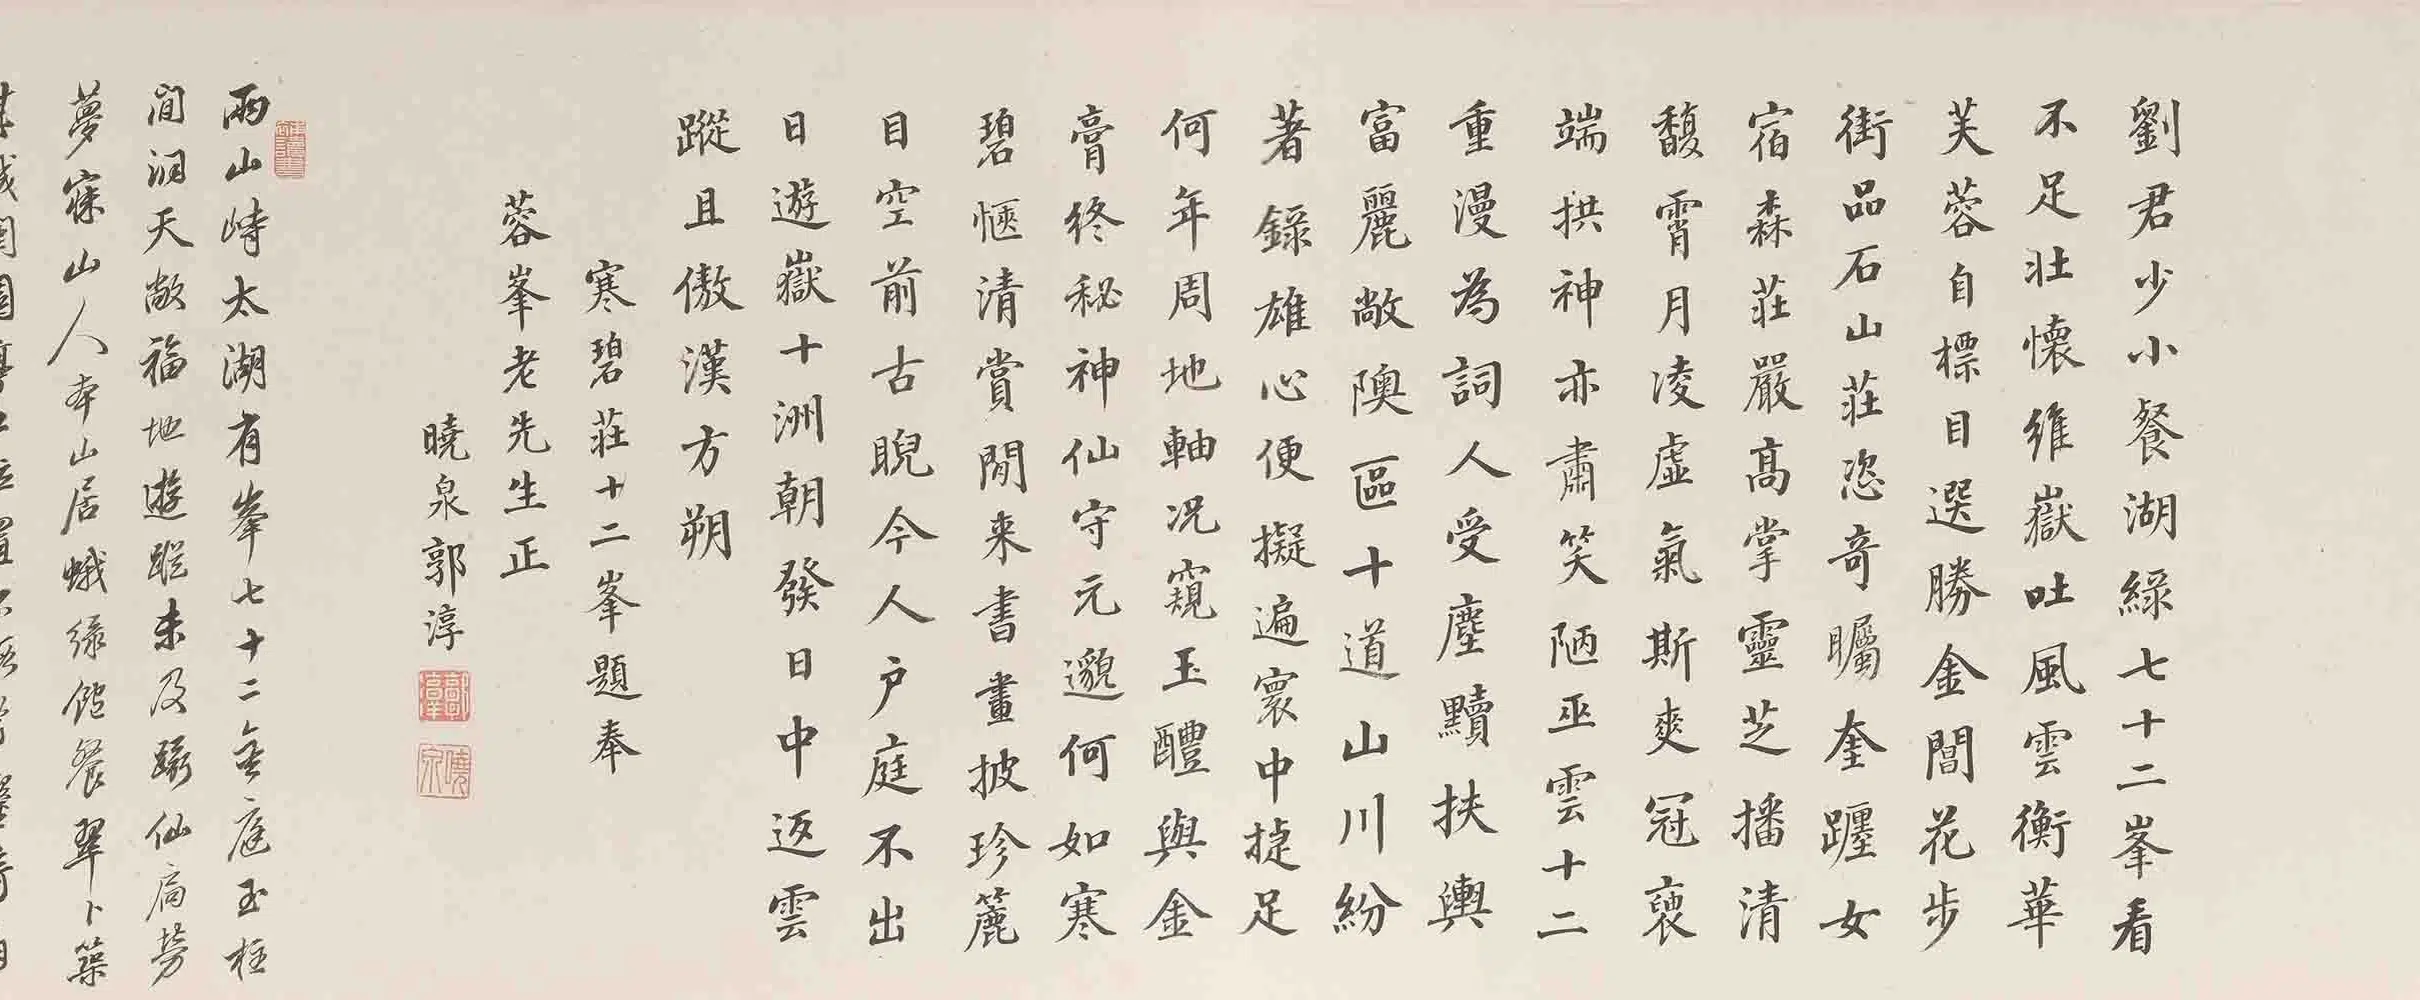 劉君少小餐湖綠七十二峯看
不足壯懷維嶽吐風雲衡華
芙蓉自標目選勝金閶花步
街品石山莊恣奇矚奎躔女
宿森莊嚴高掌靈芝播清
馥霄月凌虛氣斯爽冠裒
端拱神亦肅笑陋巫雲十二
重漫為詞人受塵黷扶輿
富麗敞隩區十道山川紛
著錄雄心便擬遍寰中捷足
何年周地軸況窺玉醴與金
膏終秘神仙守元邈何如寒
碧愜清賞閒来書畫披珍簏
目空前古睨今人户庭不出
日遊嶽十洲朝發日中返雲
蹤且傲漢方朔
寒碧莊十二峯題奉
蓉峯老先生正
曉泉郭淳
郭淳
曉泉
兩山峙太湖有峯七十二金庭玉柱
間洞天敞福地遊蹤未及躡仙扃勞
夢寐山人本山居蛾綠飽餐翠卜築